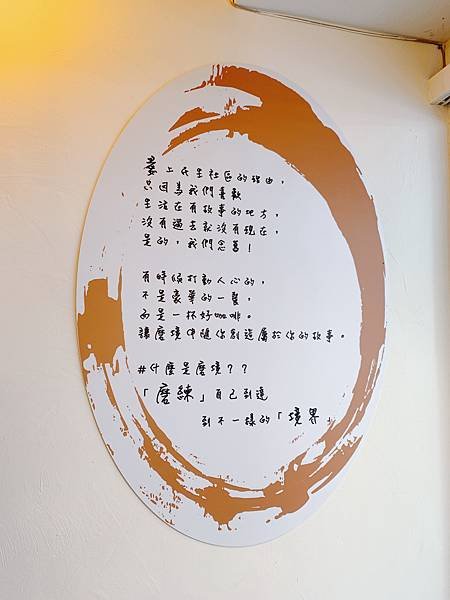 愛上民生社區的理由，
只因為我們喜歡
生活在有故事的地方，
沒有過去就沒有現在，
是的，我們念舊！
有時候打動人心的，
不是豪華的一餐，
而是一杯好咖啡。
讓磨境中陪你創造屬於你的故事。
#什麼是磨境？？
「磨練」自己到達
到不一樣的「境界」